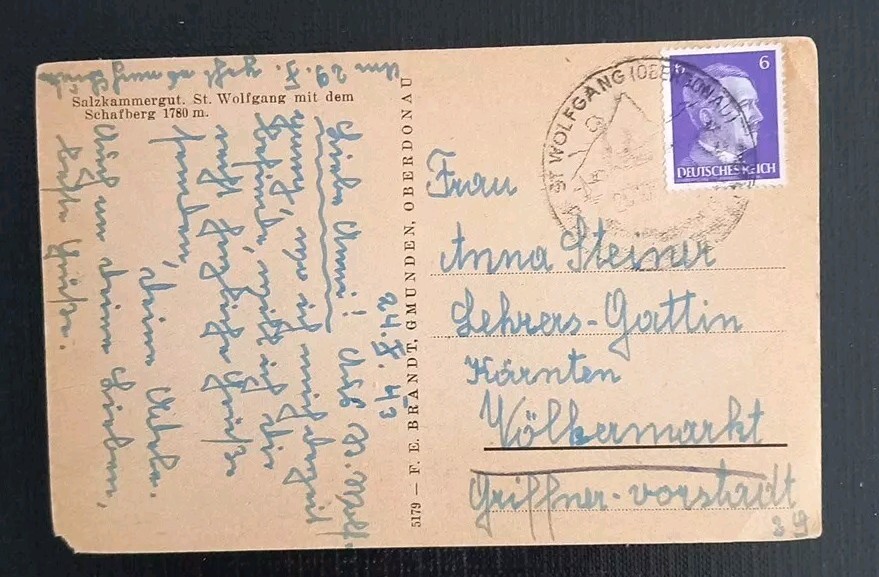 Salzkammergut. St. Wolfgang mit dem
Schafberg 1780 m.
24. X. 43
Liebe Anni! Aus St. Wolf-
gang, wo ich mich derzeit
befinde, möchte ich dir
recht herzliche Grüße
senden, deine
Auch an deine Lieben,
beste Grüße.
Am 29. X. geht es nach
5179 — F. E. BRANDT, GMUNDEN, OBERDONAU
ST WOLFGANG (OBERDONAU)
6
DEUTSCHES REICH
Frau
Anna Steiner
Lehrers-Gattin
Kärnten
Völkermarkt
Griffner-vorstadt
29